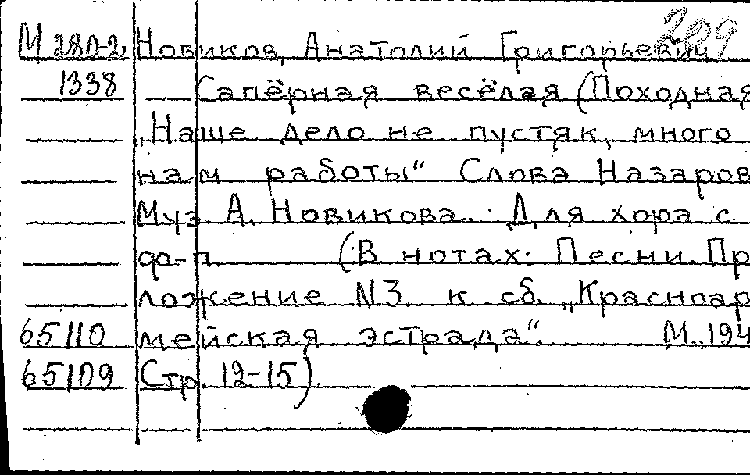 209
М 280-2 Новиков, Анатолий Григорьевич
1338 Сапёрная весёлая (Походная
„Наше дело не пустяк, много
нам работы“ Слова Назаров
Муз А. Новикова. Для хора с
ф-п. (В нотах: Песни. Пр
ложение N3 к сб. „Красноар
65110 мейская эстрада“. М., 194
65109 Стр. 12-15)